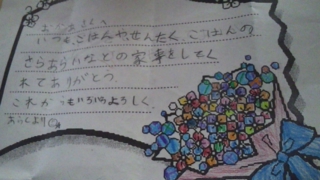 おかあさんへ
いつも、ごはんや、せんたく、ごはんの
さらあらいなどの家事をしてく
れてありがとう
これからもいろいろよろしく。
より